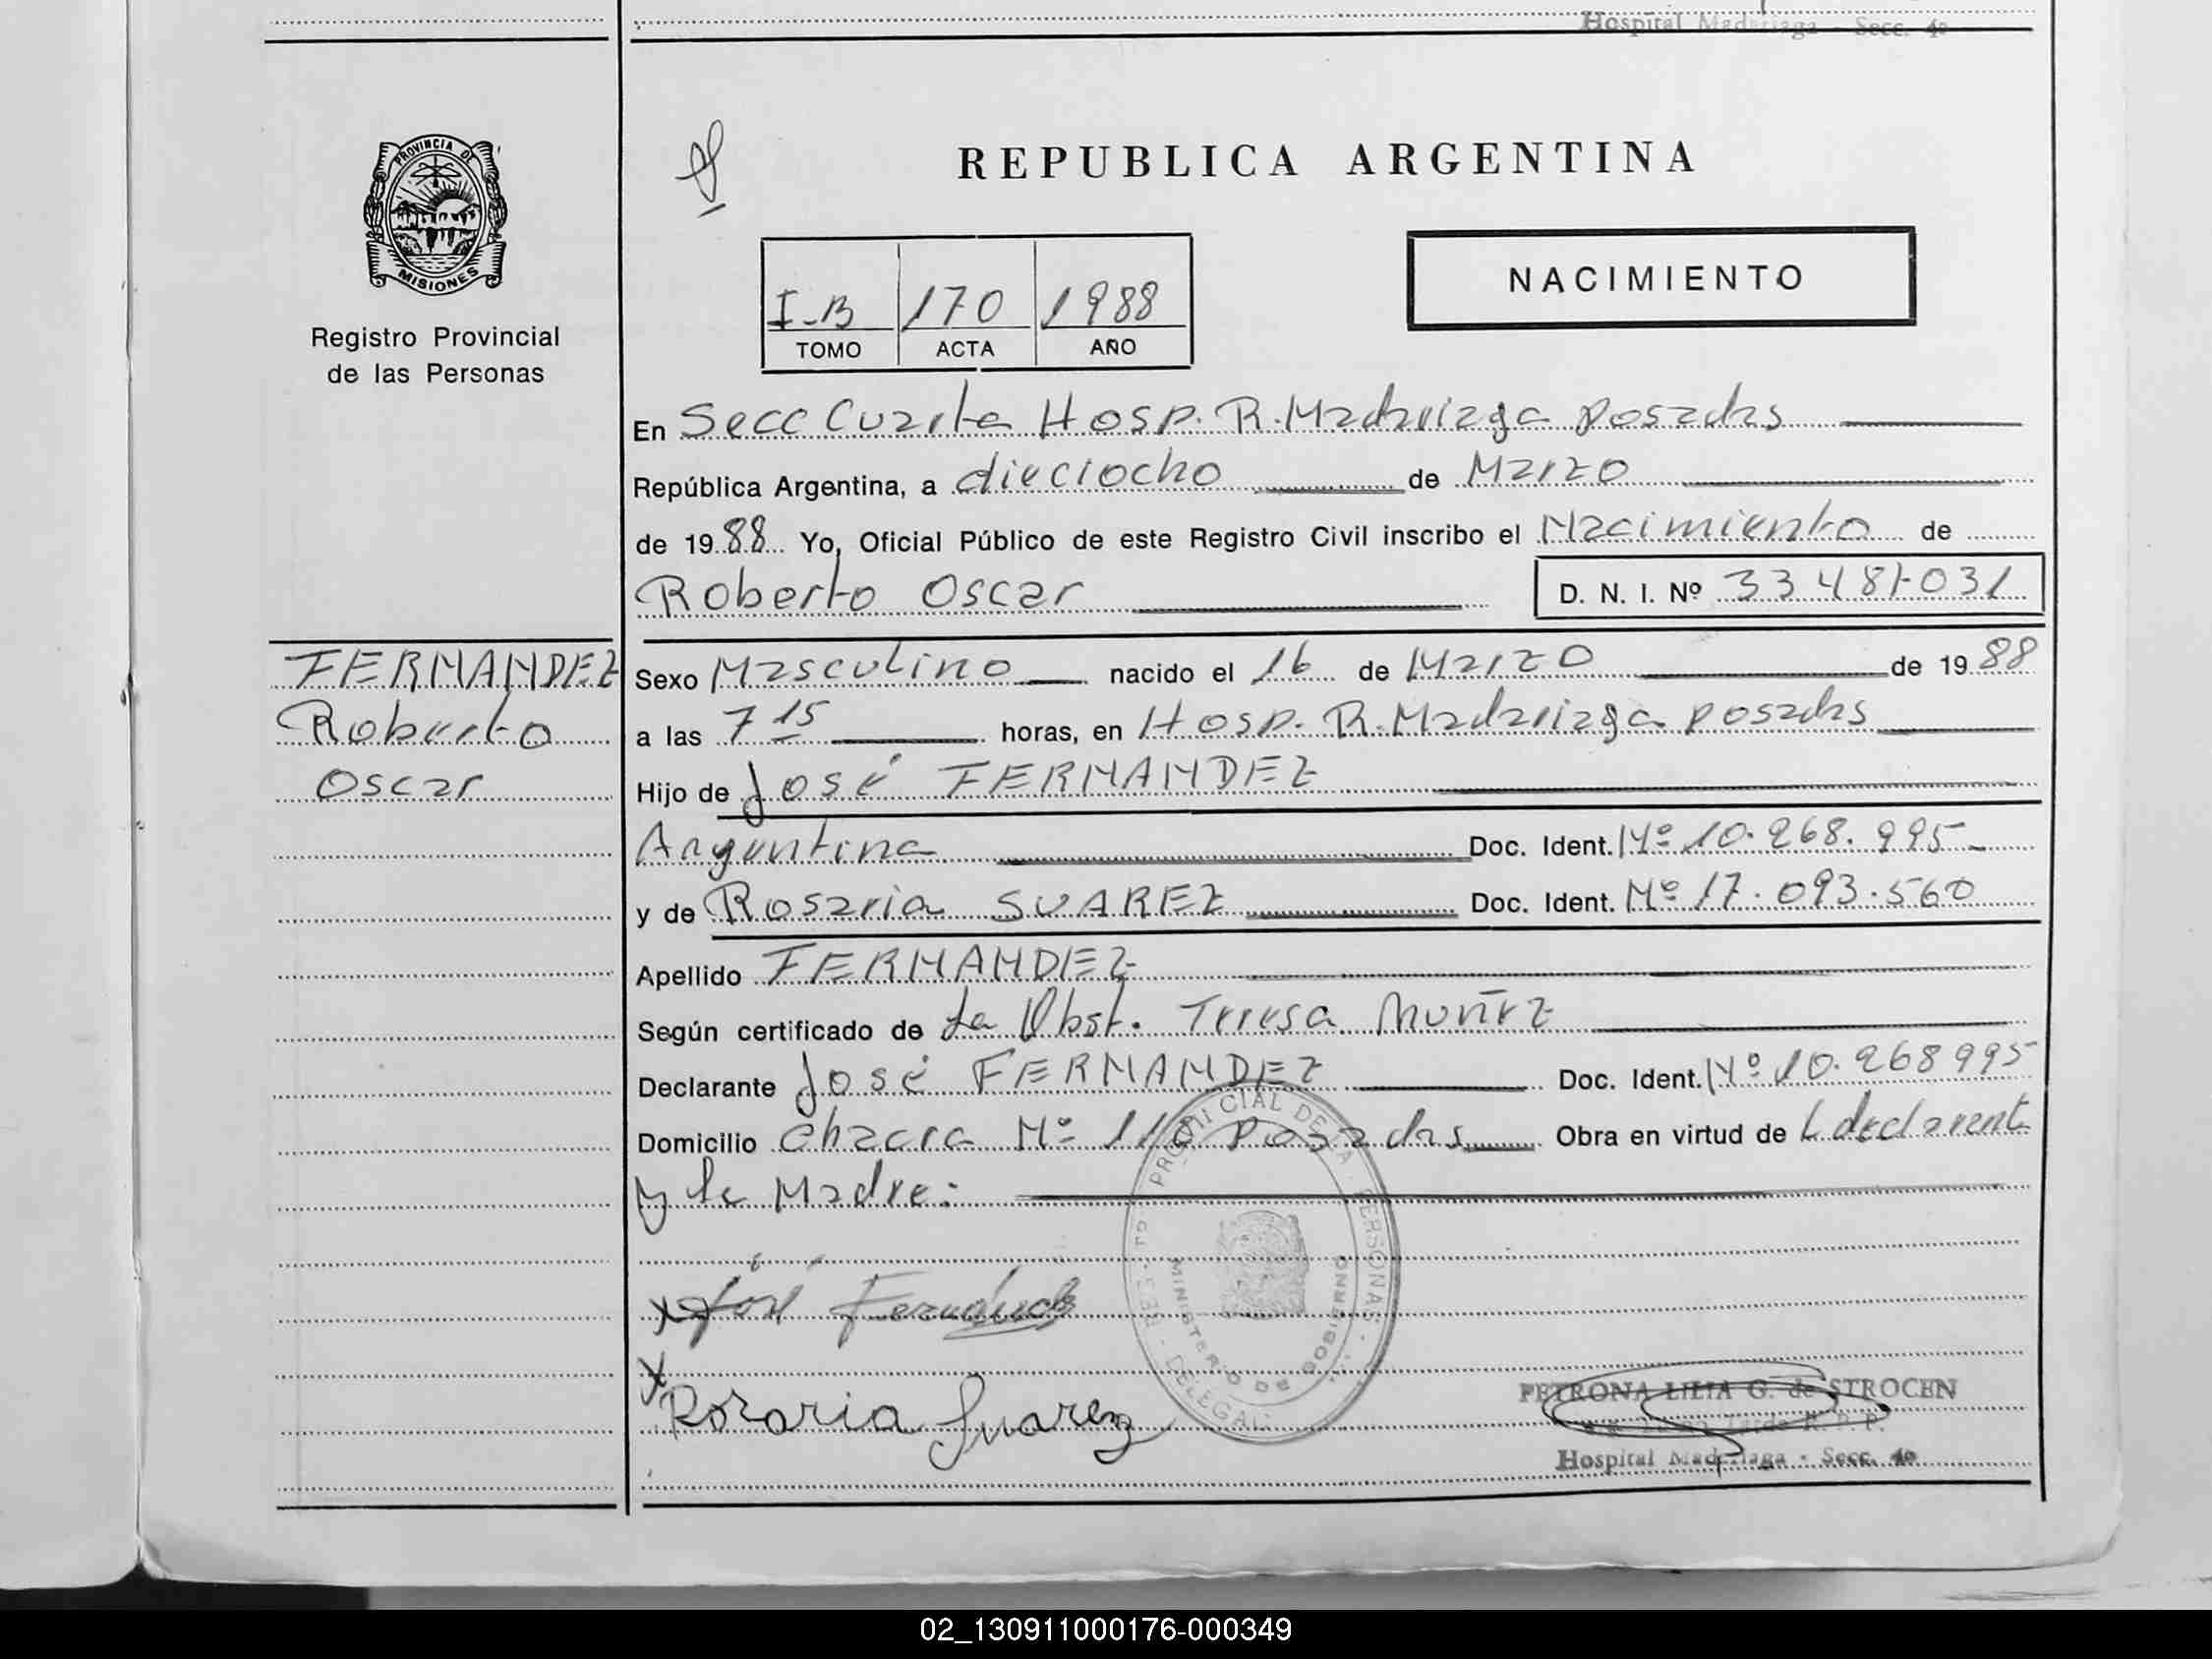 Hospital Madariaga - Secc. 4º
PROVINCIA DE
MISIONES
Registro Provincial
de las Personas
REPUBLICA ARGENTINA
I-B 170 1988
TOMO ACTA AÑO
NACIMIENTO
En Secc Cuarta Hosp. R. Madariaga posadas
República Argentina, a dieciocho de Marzo
de 1988 Yo, Oficial Público de este Registro Civil inscribo el Nacimiento de
Roberto Oscar D. N. I. Nº 33481031
FERNANDEZ
Roberto
Oscar
Sexo Masculino nacido el 16 de Marzo de 1988
a las 7 15 horas, en Hosp. R. Madariaga posadas
Hijo de José FERNANDEZ
Argentina Doc. Ident. Nº 10.268.995
y de Rosaria SUAREZ Doc. Ident. Nº 17.093.560
Apellido FERNANDEZ
Según certificado de La Obst. Teresa Muñez
Declarante José FERNANDEZ Doc. Ident. Nº 10.268995
Domicilio chacra Nº 118 posadas Obra en virtud de L declarante
y la Madre:
PROVINCIAL DE LA PERSONAS
MINISTERIO DE GOBIERNO
José Fernández
Rozaria Suarez
PETRONA LILIA G. de STROCEN
Hospital Madariaga - Secc. 4º
02_130911000176-000349